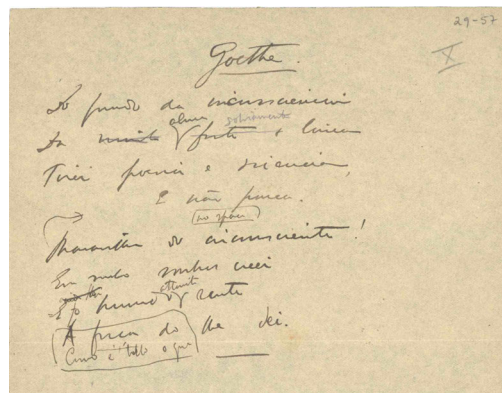 29-57
X
Goethe.
Do fundo da inconsciencia
Da alma sobriamente
forte e louca
Tirei poesia e sciencia,
E não pouca.
(no space)
Maravilha do inconsciente!
Em sonho, sonhos criei
E o mundo attonito sente
A força do lhe dei.
Como é bello o que